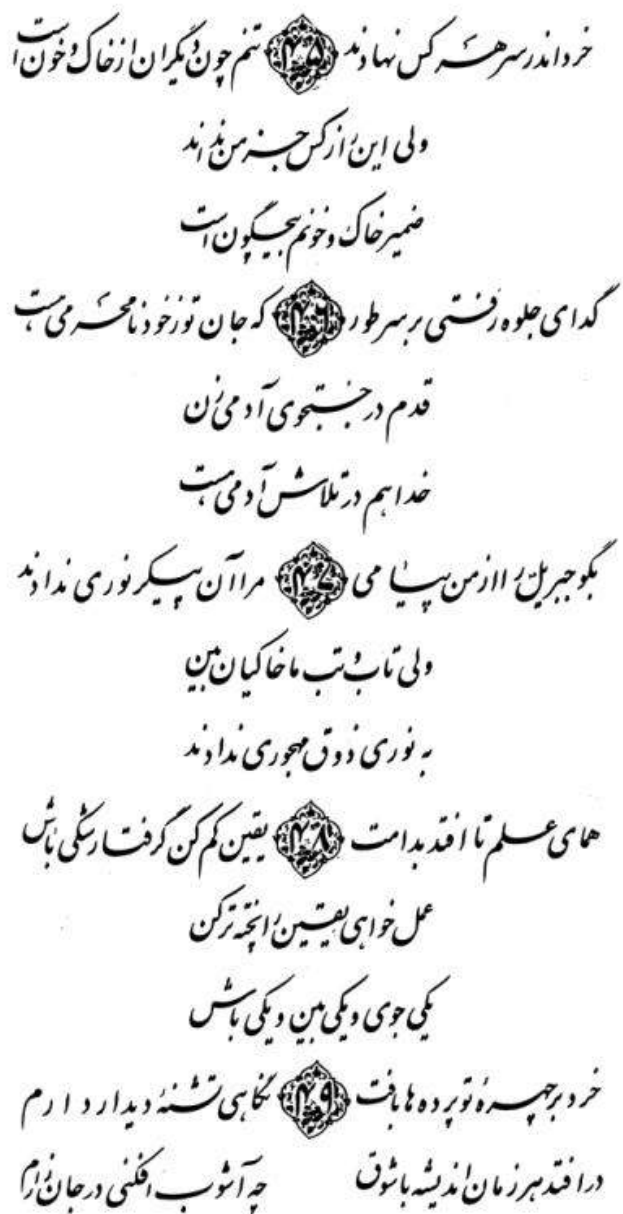 خرد اندر سر هر کس نهادند ۴۵ تنم چون دیگران از خاک و خون است
ولی این راز کس جز من نداند
ضمیر خاک و خونم بیچگون است
گدای جلوه رفتی بر سر طور ۴۶ که جان تو ز خود نامحرمی هست
قدم در جستجوی آدمی زن
خدا هم در تلاش آدمی هست
بگو جبریل را از من پیامی ۴۷ مرا آن پیکر نوری ندادند
ولی تاب و تب ما خاکیان بین
به نوری ذوق مهجوری ندادند
همای علم تا افتد بدامت ۴۸ یقین کم کن گرفتار شکی باش
عمل خواهی یقین را پخته تر کن
یکی جوی و یکی بین و یکی باش
خرد بر چهرهٔ تو پرده ها بافت ۴۹ نگاهی تشنهٔ دیدار دارم
درافتد هر زمان اندیشه با شوق چه آشوب افکنی در جان زارم